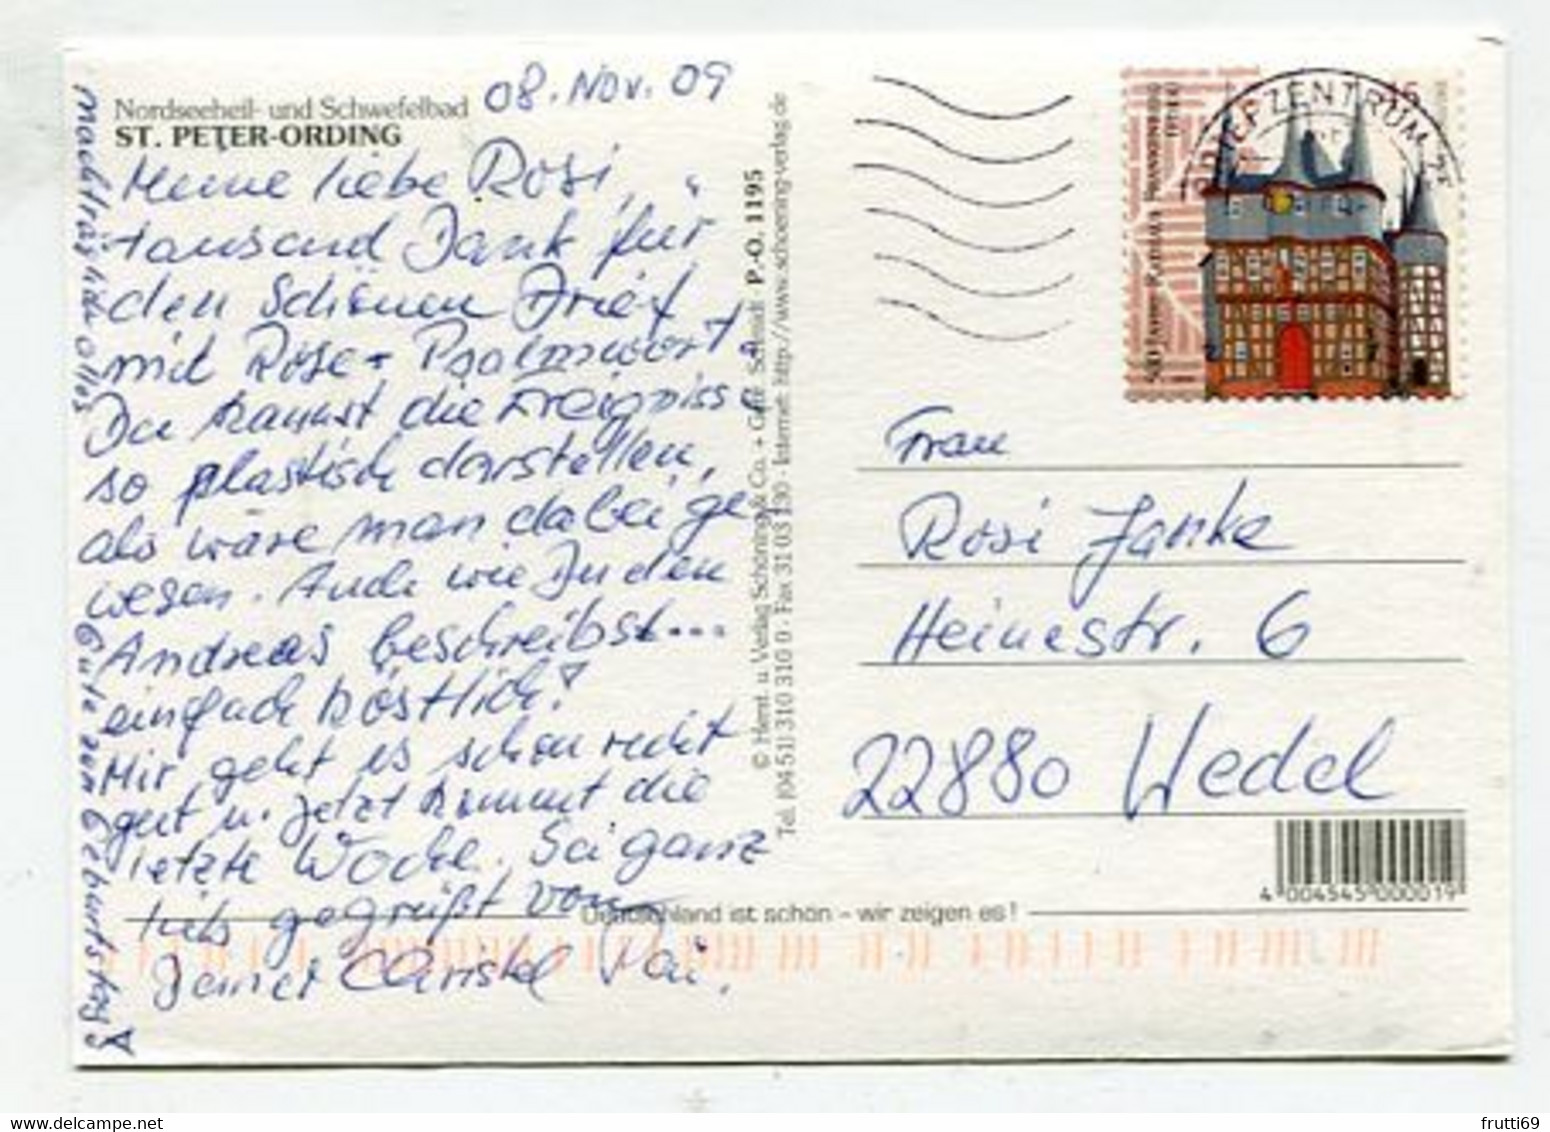 08. Nov. 09
Nordseeheil- und Schwefelbad
ST. PETER-ORDING
Meine liebe Rosi,
tausend Dank für
den schönen Brief
mit Rose + Psalmwort.
Du kannst die Ereignisse
so plastisch darstellen,
als wäre man dabei ge
wesen. Auch wie Du den
Andreas beschreibst...
einfach köstlich!
Mir geht es schon recht
gut u. jetzt kommt die
letzte Woche. Sei ganz
lieb gegrüßt von
Deiner Christel
nachträglich alles
Gute zum Geburtstag
© Herst. u. Verlag Schöning & Co. + Gebr. Schmidt P.-O. 1195
Tel. (0451) 310 310 0 · Fax 31 03 130 · Internet: http://www.schoening-verlag.de
BRIEFZENTRUM
Frau
Rosi Janke
Heinestr. 6
22880 Wedel
4 004545 000019
Deutschland ist schön – wir zeigen es!
frutti69